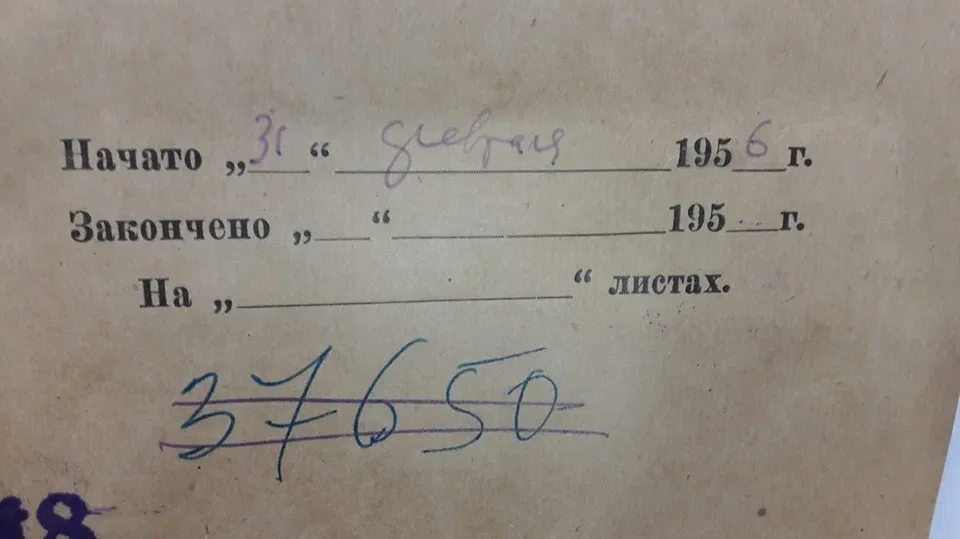 Начато „31“ февраля 1956 г.
Закончено „___“ ______ 195__ г.
На „______“ листах.
37650
48